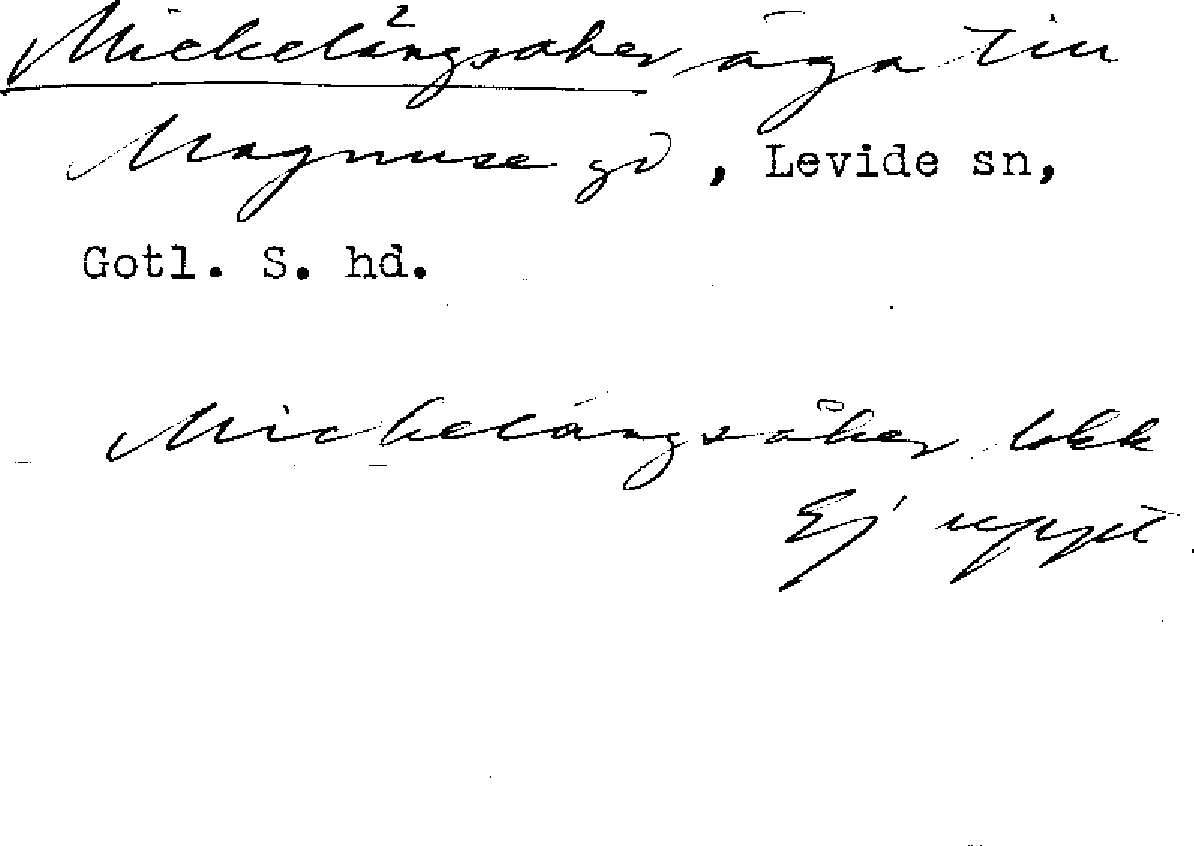 Mickelängsåker äga till
Magnuse gd, Levide sn,
Gotl. S. hd.
Mickelängsåker Ekk
Ej uppt.